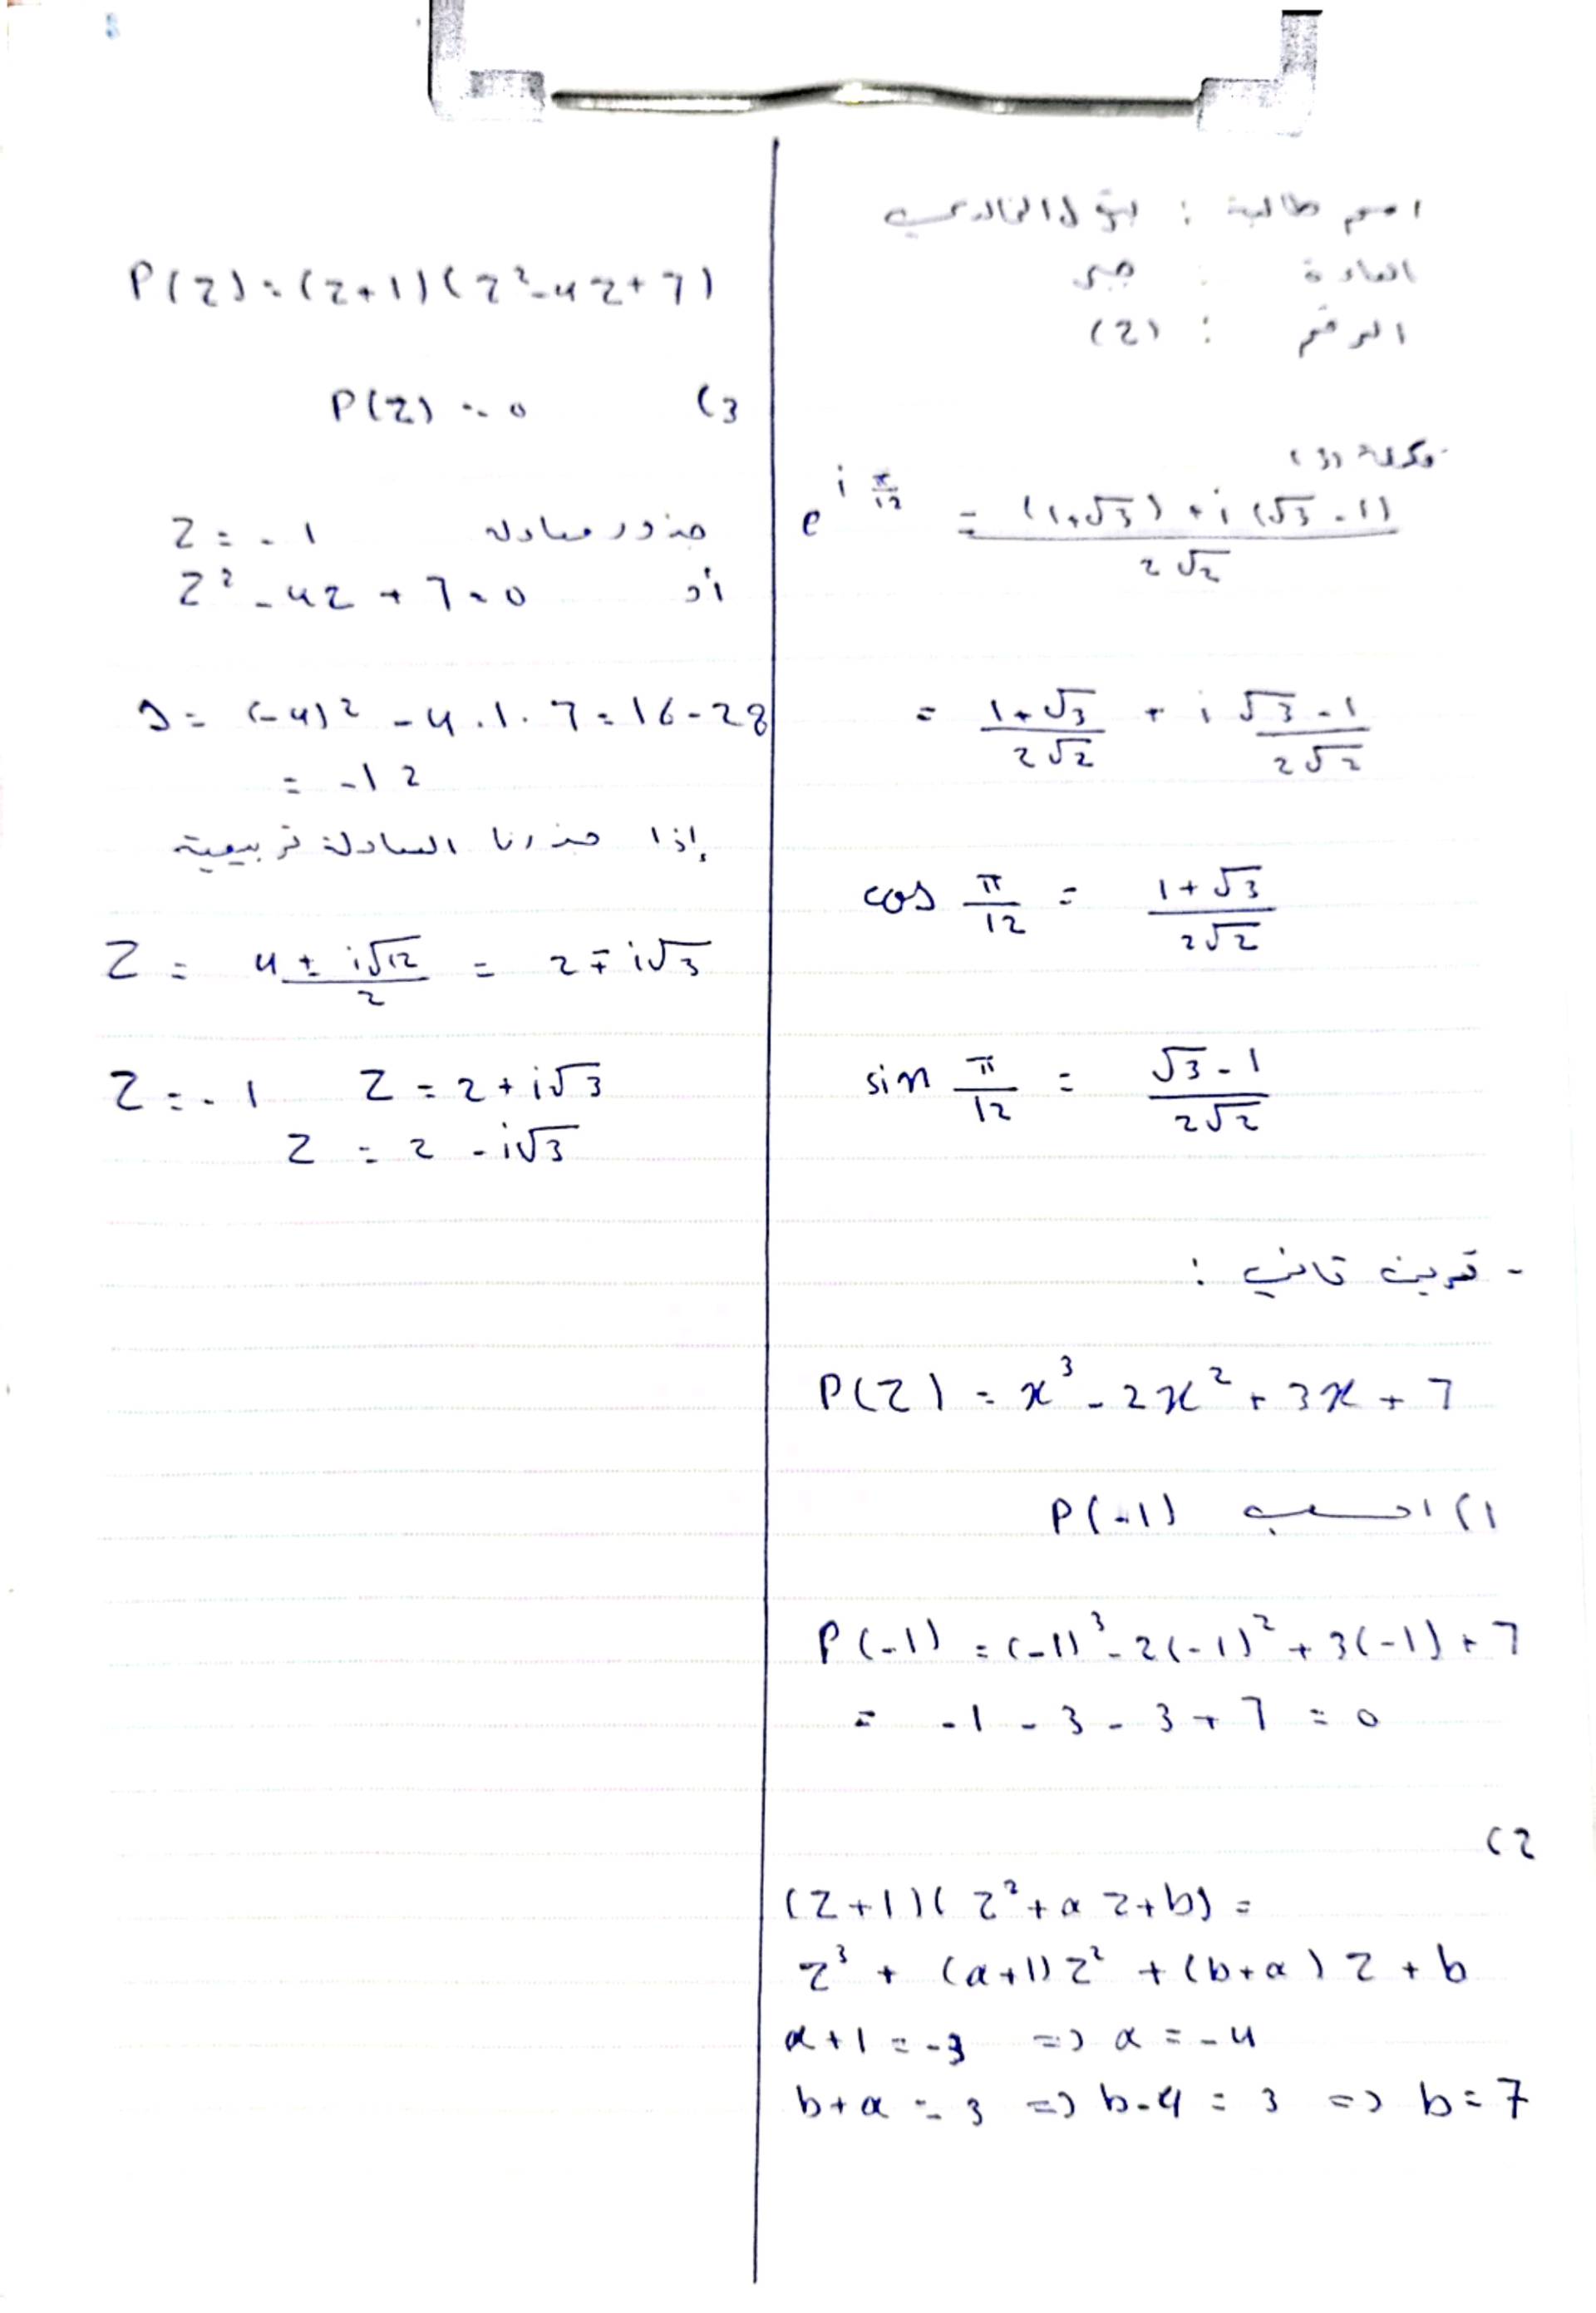 اسم طالبة : بتول الخالدي
المادة : جبر
الرقم : (2)
تكملة (3)
e^{i π/12} = ((1+√3) + i(√3-1)) / 2√2
= (1+√3)/2√2 + i (√3-1)/2√2
cos π/12 = (1+√3)/2√2
sin π/12 = (√3-1)/2√2
- تمرين ثاني :
P(Z) = x³ - 2x² + 3x + 7
1) احسب P(-1)
P(-1) = (-1)³ - 2(-1)² + 3(-1) + 7
= -1 - 3 - 3 + 7 = 0
(2
(Z+1)(Z² + a Z + b) =
Z³ + (a+1)Z² + (b+a) Z + b
a+1 = -3 => a = -4
b+a = 3 => b-4 = 3 => b = 7
P(Z) = (Z+1)(Z² - 4Z + 7)
(3 P(Z) = 0
جذور معادلة Z = -1
أو Z² - 4Z + 7 = 0
Δ = (-4)² - 4.1.7 = 16 - 28
= -12
إذا جذرنا المعادلة تربيعية
Z = (4 ± i√12)/2 = 2 ∓ i√3
Z = -1 Z = 2 + i√3
Z = 2 - i√3